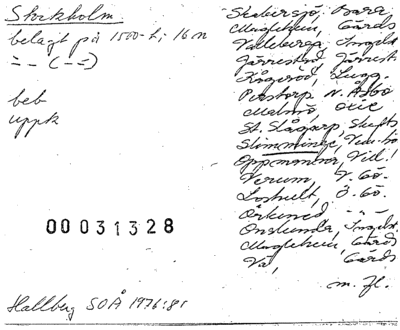 Stockholm
belagt på 1500-t; 16 n
-"- (-"-)
beb
uppk
00031328
Hallberg SOÅ 1976:81
Skabersjö, Bara
Maglehem, Gärds
Valleberga, Ingelst
Järrestad, Järrest
Kågeröd, Lugg.
Perstorp N.Åsbo
Malmö, Oxie
St. Slågarp, Skytts
Slimminge, Vem-hö
Oppmanna, Vill.
Verum, V. Gö.
Loshult, Ö. Gö.
Örkened, -"-
Onslunda, Ingelst
Maglehem, Gärds
Vä, Gärds
m. fl.